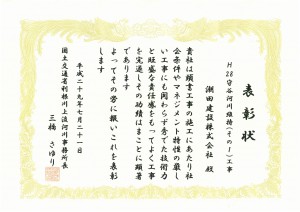 表彰状
H28守谷河川維持(その1)工事
潮田建設株式会社 殿
貴社は頭書工事の施工にあたり社
会条件やマネジメント特性の厳し
い工事にも関わらず秀でた技術力
と旺盛な責任感をもってよく工事
を完遂しその功績はまことに顕著
であります
よってその労に報いこれを表彰
します
平成二十九年七月二十一日
国土交通省利根川上流河川事務所長
三橋 さゆり